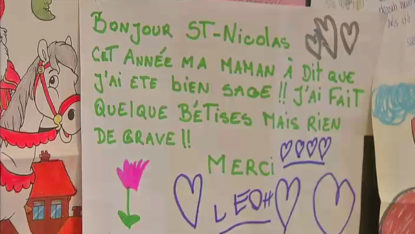 BONJOUR ST-NICOLAS
CET ANNÉE MA MAMAN À DIT QUE
J'AI ETE BIEN SAGE !! J'AI FAIT
QUELQUE BÉTISES MAIS RIEN
DE GRAVE !!
MERCI
LEOH